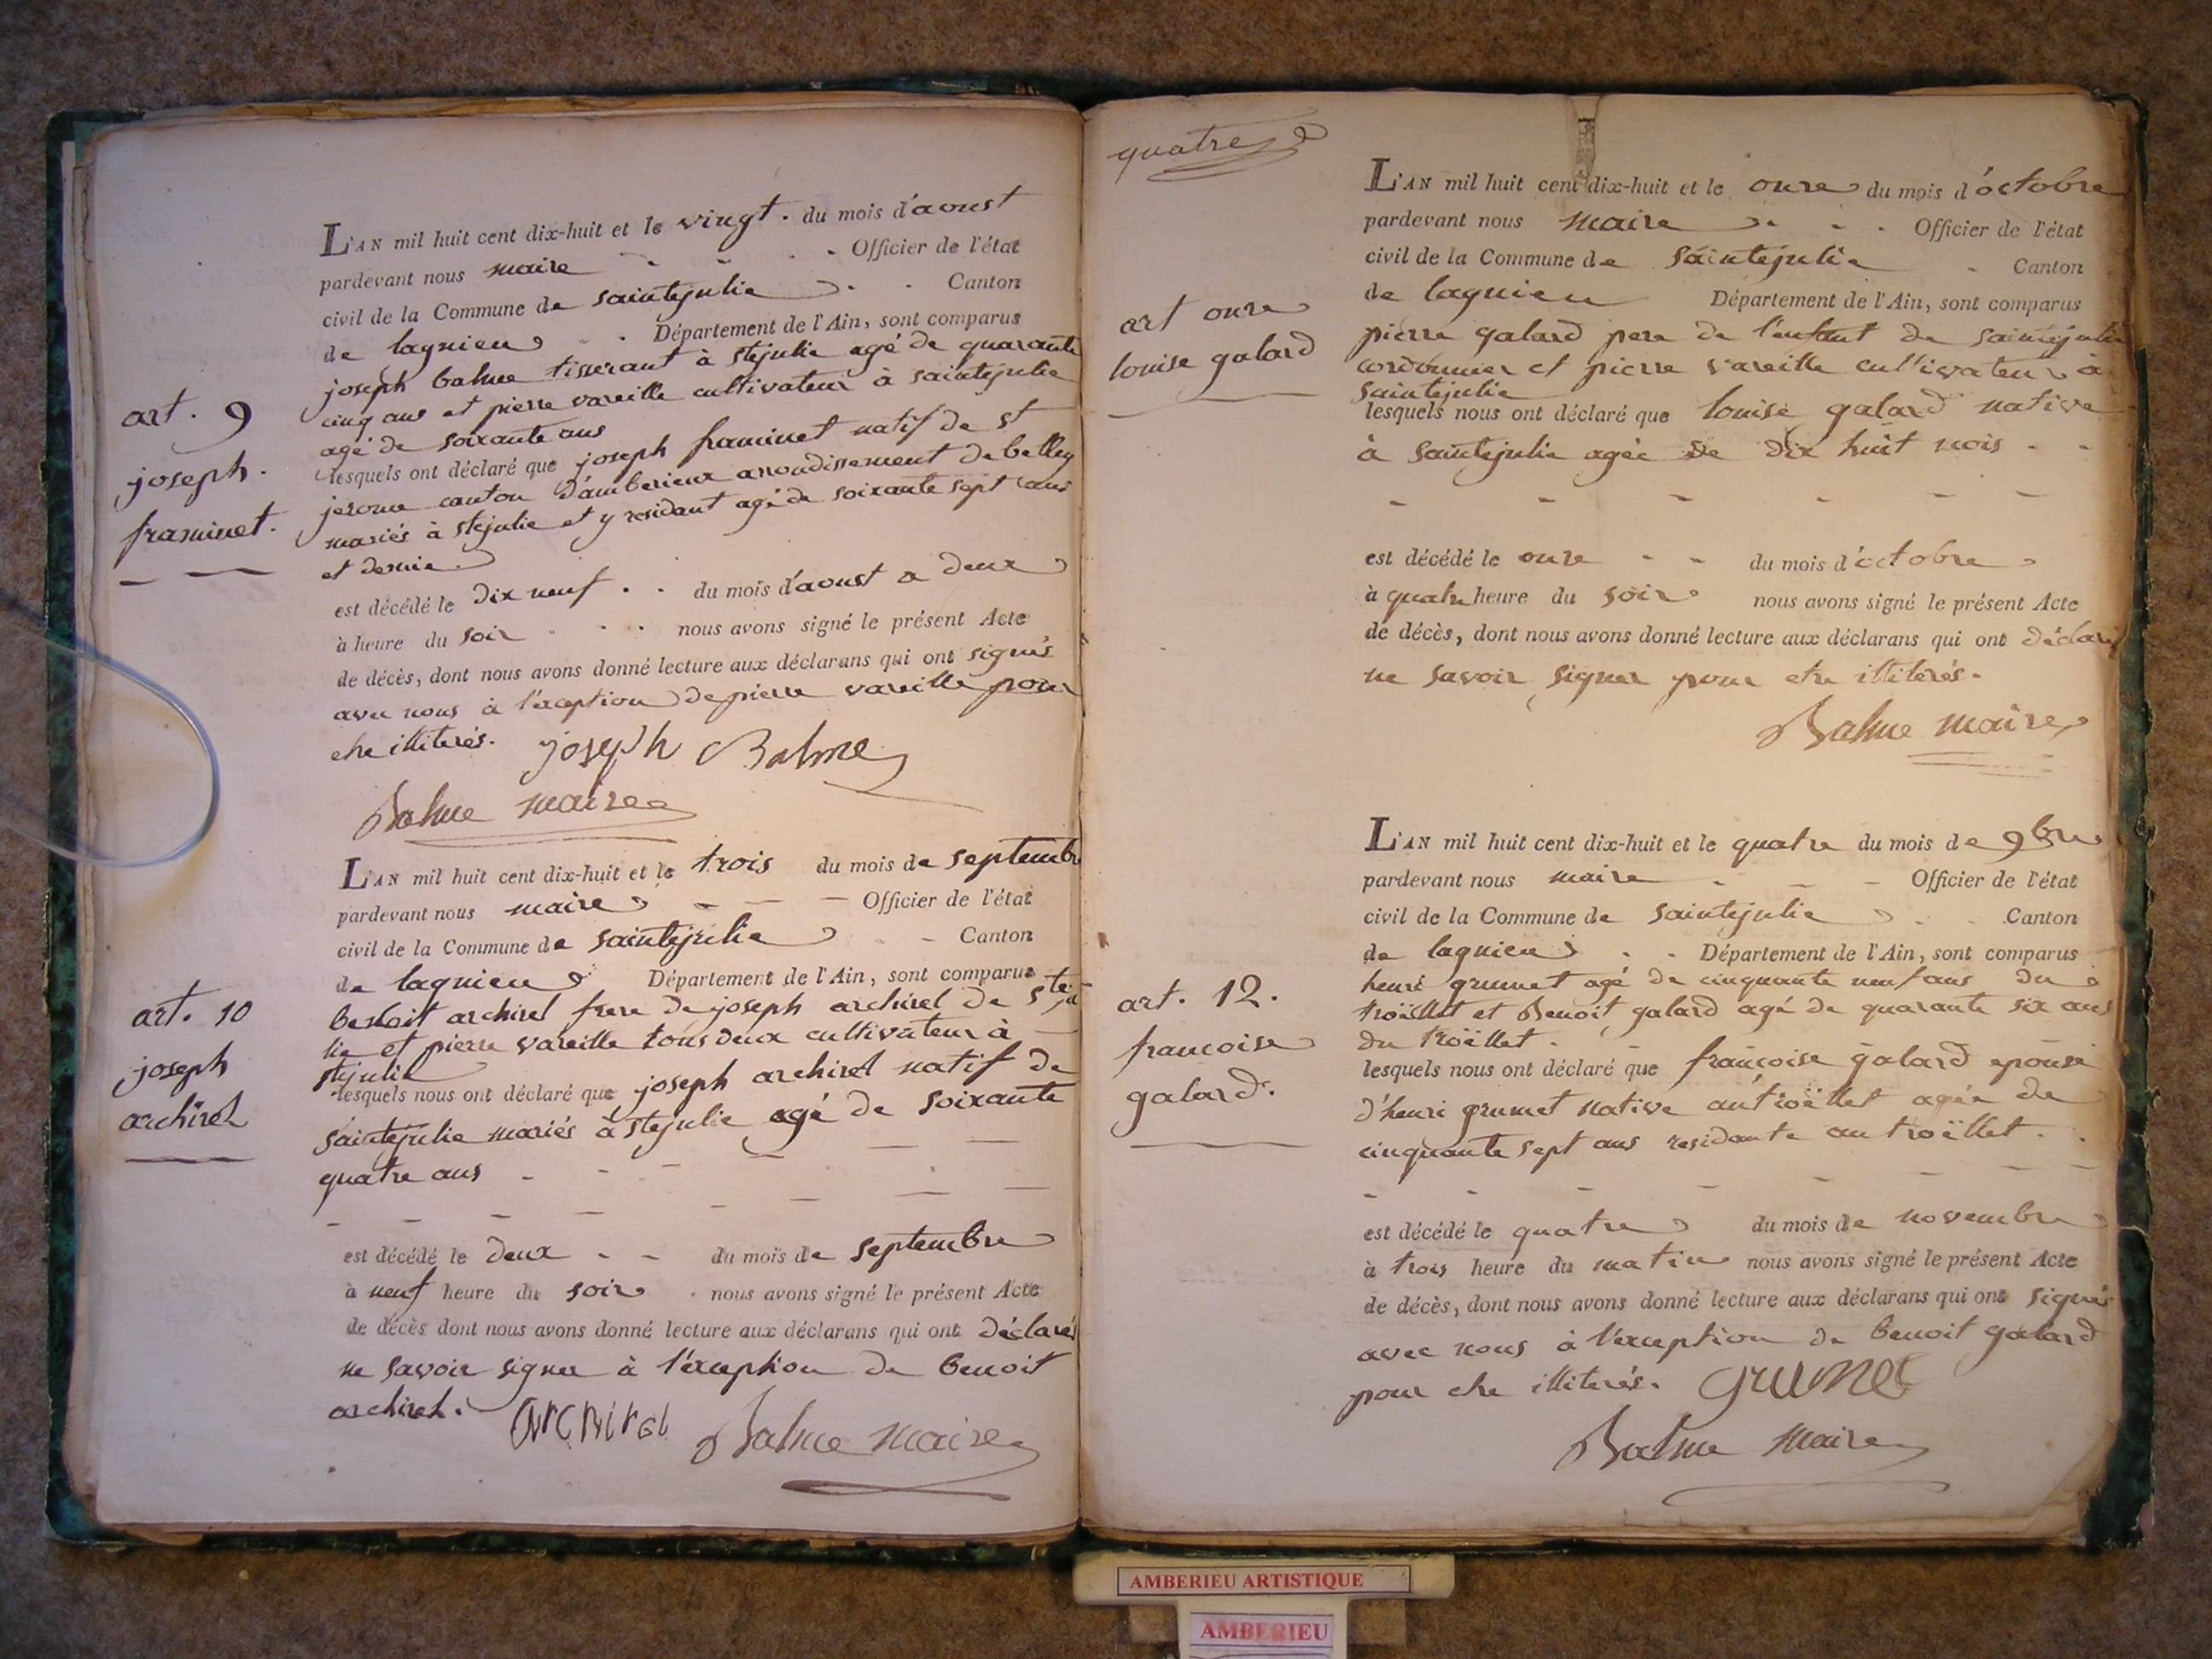 L'AN mil huit cent dix-huit et le vingt . du mois d'aoust
pardevant nous maire - - - Officier de l'état
civil de la Commune de saintejulie - - Canton
de lagnieu - Département de l'Ain, sont comparus
joseph balme tisserant à stejulie agé de quarante
cinq ans et pierre vareille cultivateur à saintejulie
agé de soixante ans
lesquels ont déclaré que joseph framinet natif de st
jerome canton d'amberieux arrondissement de belley
mariés à stejulie et y residant agé de soixante sept ans
et demie
est décédé le dix neuf . . du mois d'aoust a deux
à heure du soir - - . nous avons signé le présent Acte
de décès, dont nous avons donné lecture aux déclarans qui ont signés
avec nous à l'exception de pierre vareille pour
etre illiterés. joseph Balme
Balme maire
art. 9
joseph.
framinet.
L'AN mil huit cent dix-huit et le trois du mois de septembre
pardevant nous maire - - - Officier de l'état
civil de la Commune de saintejulie - - Canton
de lagnieu Département de l'Ain, sont comparus
benoit archirel frere de joseph archirel de steju
lie et pierre vareille tous deux cultivateur à
stejulie
lesquels nous ont déclaré que joseph archirel natif de
saintejulie mariés à stejulie agé de soixante
quatre ans - - - - - -
est décédé le deux - - du mois de septembre
à neuf heure du soir . nous avons signé le présent Acte
de décès dont nous avons donné lecture aux déclarans qui ont déclarés
ne savoir signer à l'exception de benoit
archirel. archirel Balme maire
art. 10
joseph
archirel
quatre
L'AN mil huit cent dix-huit et le onze du mois d'octobre
pardevant nous maire - - . Officier de l'état
civil de la Commune de saintejulie - Canton
de lagnieu Département de l'Ain, sont comparus
pierre galard pere de l'enfant de saintejulie
cordonnier et pierre vareille cultivateur à
saintejulie
lesquels nous ont déclaré que louise galard native
à saintejulie agée de dix huit mois - -
- - - - - -
est décédé le onze - - du mois d'octobre
à quatre heure du soir nous avons signé le présent Acte
de décès, dont nous avons donné lecture aux déclarans qui ont déclaré
ne savoir signer pour etre illiterés.
Balme maire
art onze
louise galard
L'AN mil huit cent dix-huit et le quatre du mois de 9bre
pardevant nous maire - - - Officier de l'état
civil de la Commune de saintejulie - - Canton
de lagnieu . . Département de l'Ain, sont comparus
henri grumet agé de cinquante neuf ans du
troëllet et Benoit galard agé de quarante six ans
du troëllet.
lesquels nous ont déclaré que francoise galard epouse
d'henri grumet native au troëllet agée de
cinquante sept ans residante au troëllet. .
- - - - - - -
est décédé le quatre du mois de novembre
à trois heure du matin nous avons signé le présent Acte
de décès, dont nous avons donné lecture aux déclarans qui ont signés
avec nous à l'exception de benoit galard
pour etre illiterés. grumet
Balme maire
art. 12.
francoise
galard.
AMBERIEU ARTISTIQUE
AMBERIEU